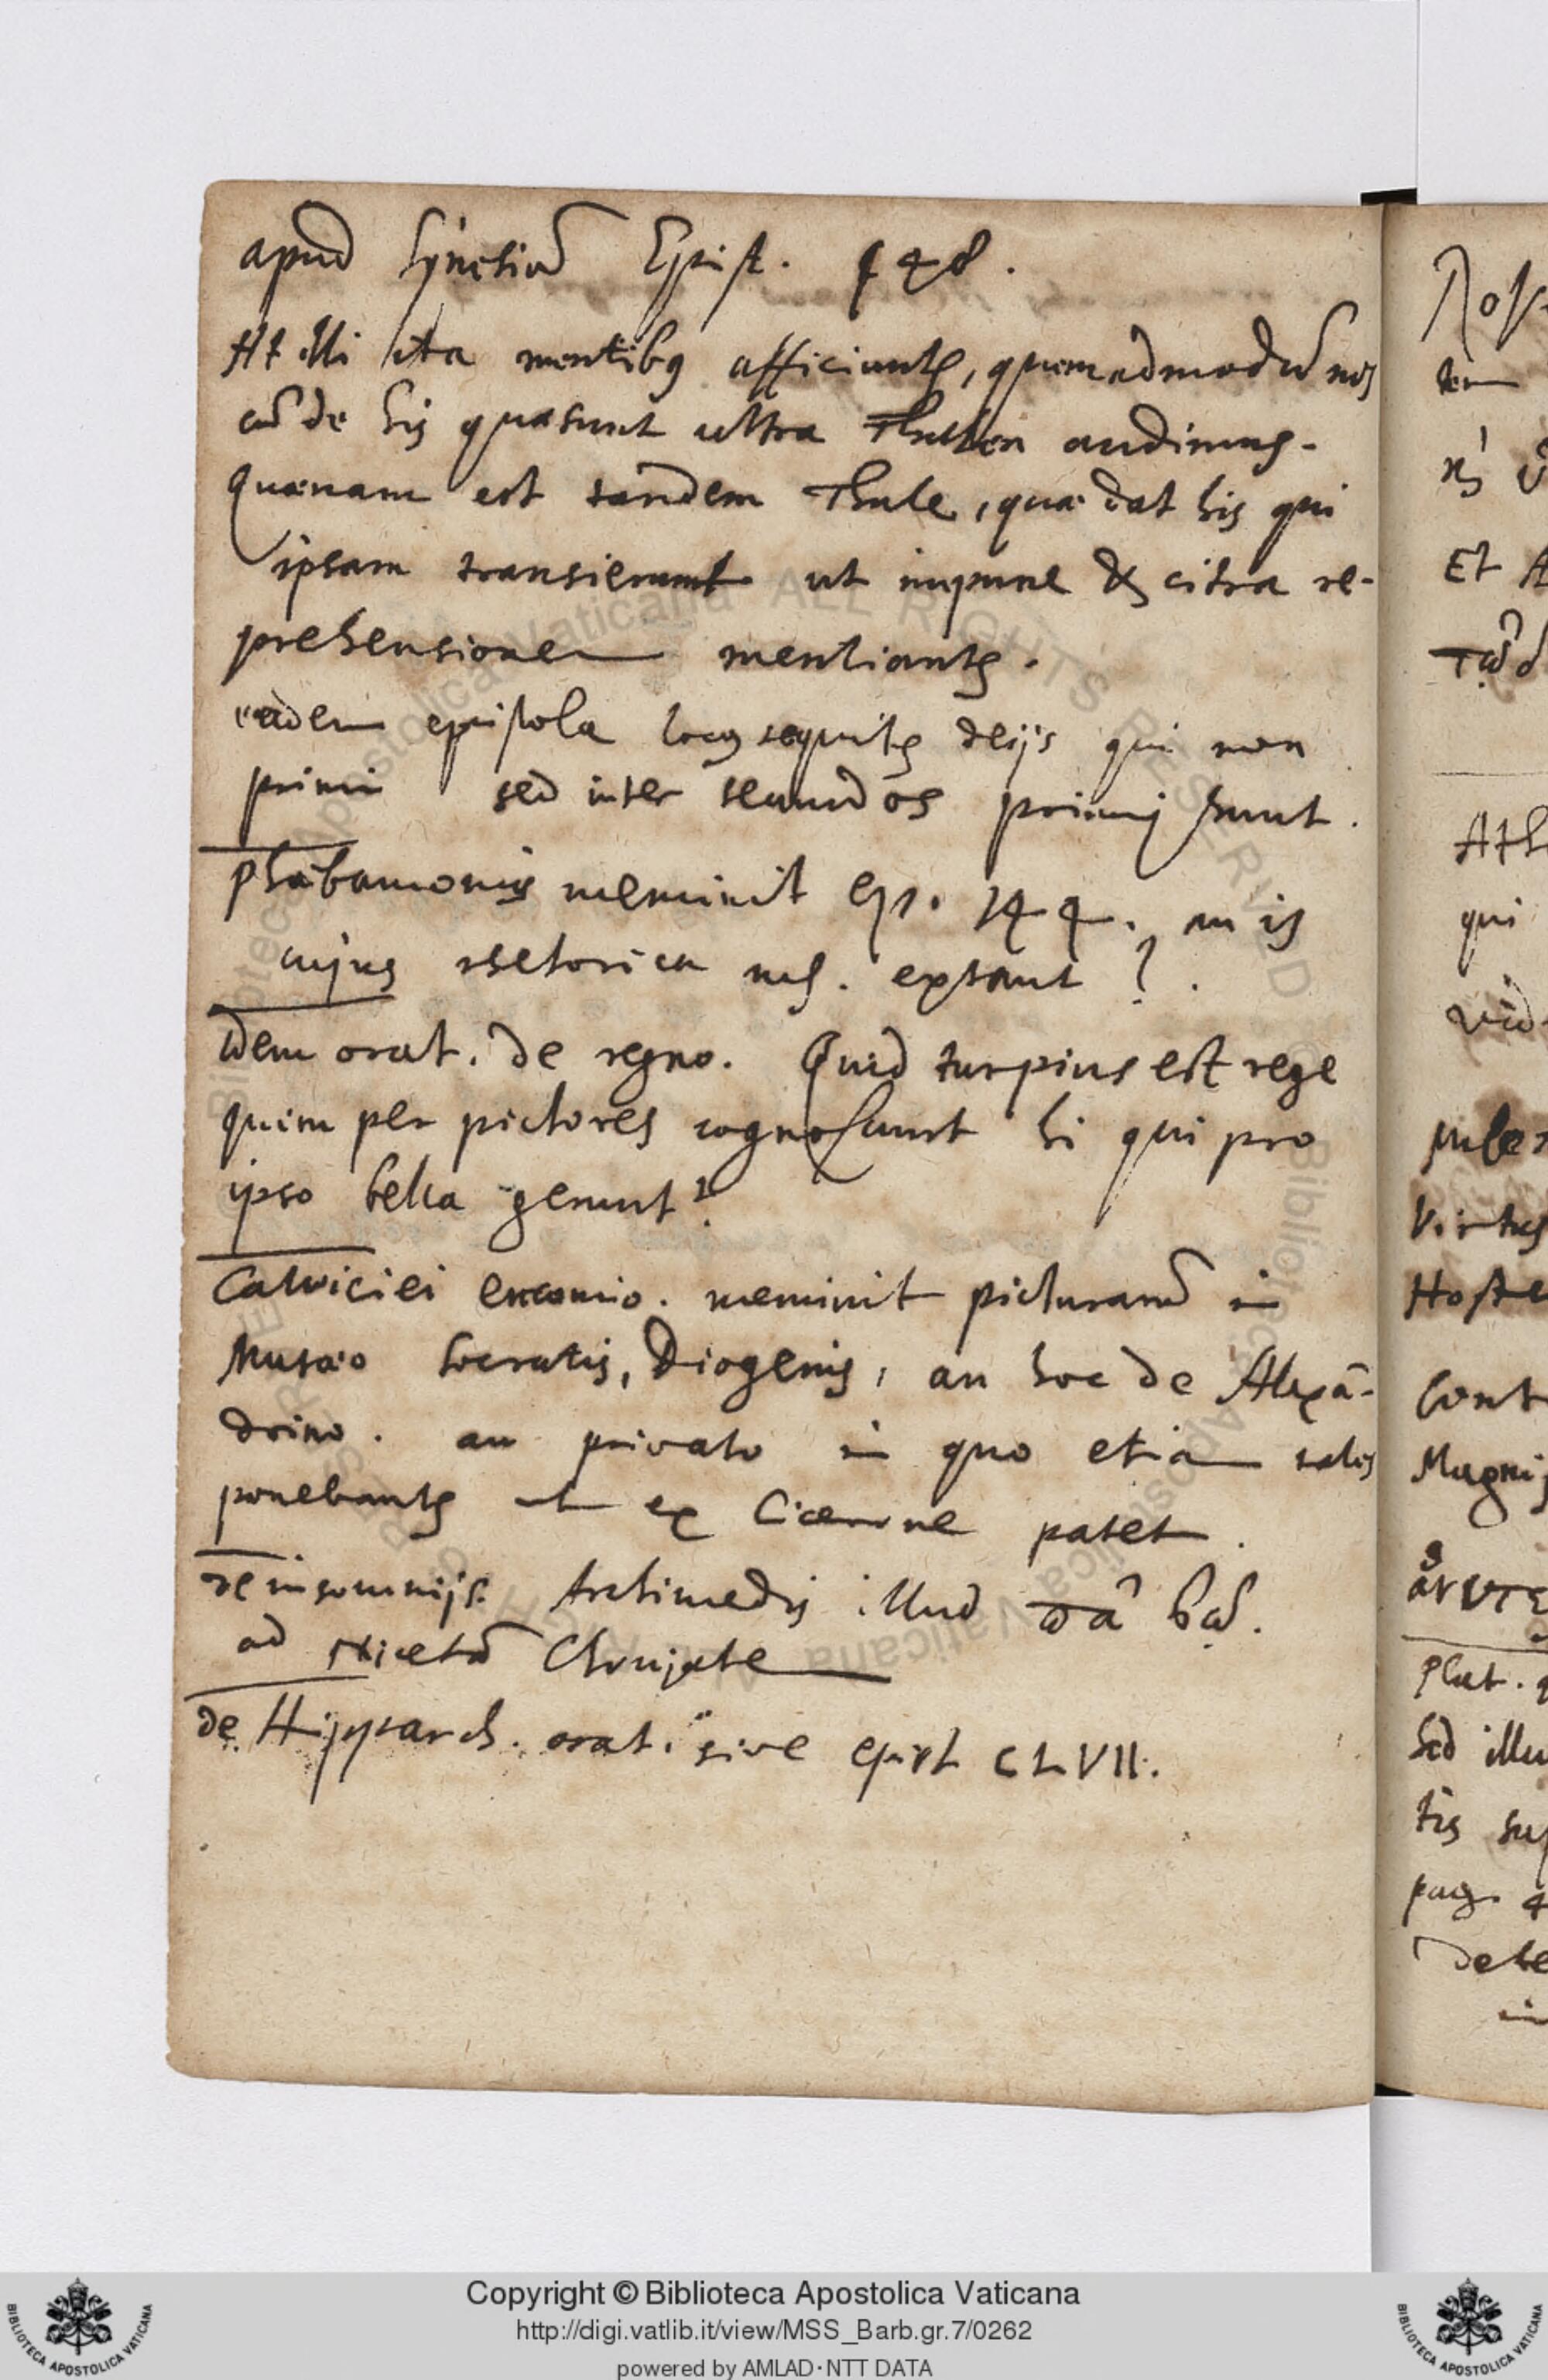 apud Synesiũ Epist. 148.
At illi ita mentibꝯ afficiunt᷑, quemadmodũ nos
cũ de his quæ sunt ultra Thulen audimus.
Quænam est tandem Thule, quæ dat his qui
ipsam transierunt ut impune & citra re-
prehensionem mentiant᷑.
eadem epistola locꝯ sequit᷑ de ijs qui non
primi sed inter secundos primi sunt.
Phæbamonis meminit Ep. 144. an is
cujus rhetorica ms. extant?.
Idem orat. de regno. Quid turpius est rege
quem per pictores cognoscunt hi qui pro
ipso bella gerunt?
Calviciei encomio. meminit picturarũ in
Musæo Socratis, Diogenis, an hoc de Alexã-
drino. an privato in quo etiam tales
ponebant᷑ ut ex Cicerone patet.
de insomnijs. Archimedis illud πᾶ βῶ.
ad Nicetã Choniate
de Hipparch. orat. sive epist CLVII.
Ros
tem
Et A
Ath
qui
vid
Virtus
Hoste
Cont
Magni
Plut. q
Sed illu
tis su
pag. 4
Debe
in
Copyright © Biblioteca Apostolica Vaticana
http://digi.vatlib.it/view/MSS_Barb.gr.7/0262
powered by AMLAD·NTT DATA
BIBLIOTECA APOSTOLICA VATICANA
BIBLIOTECA APOSTOLICA VATICANA